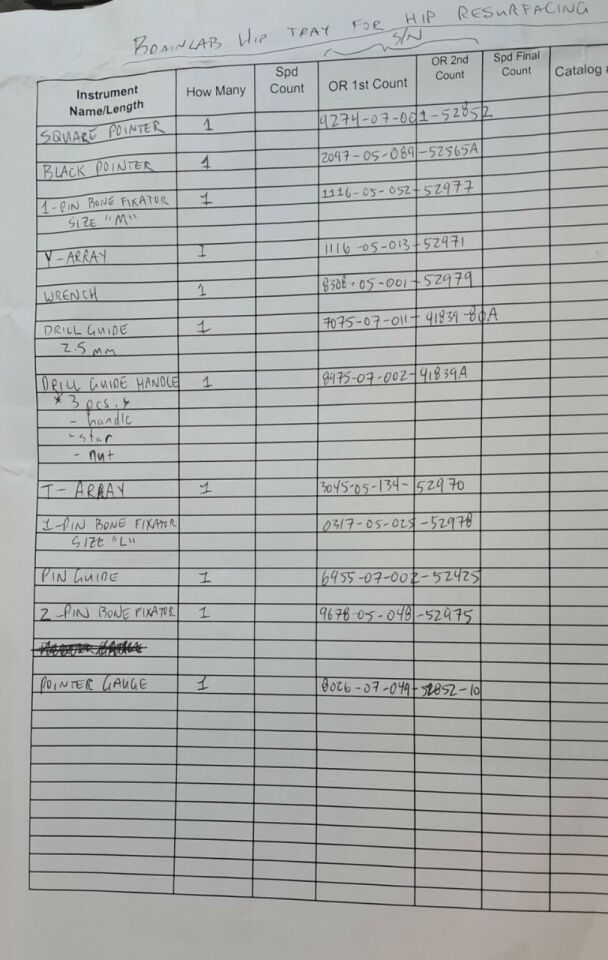 BRAINLAB HIP TRAY FOR HIP RESURFACING
S/N
Instrument Name/Length How Many Spd Count OR 1st Count OR 2nd Count Spd Final Count Catalog
SQUARE POINTER 1 9274-07-001-52852
BLACK POINTER 1 2097-05-089-52565A
1-PIN BONE FIXATOR 1 1116-05-052-52977
SIZE "M"
Y-ARRAY 1 1116-05-013-52971
WRENCH 1 8308-05-001-52979
DRILL GUIDE 1 7075-07-011-41839-80A
2.5 mm
DRILL GUIDE HANDLE 1 8975-07-002-41839A
* 3 pcs. *
- handle
- star
- nut
T-ARRAY 1 3045-05-134-52970
1-PIN BONE FIXATOR 1 0317-05-025-52978
SIZE "L"
PIN GUIDE 1 6955-07-002-52425
2-PIN BONE FIXATOR 1 9678-05-048-52975
POINTER GAUGE 1 8026-07-049-52852-10